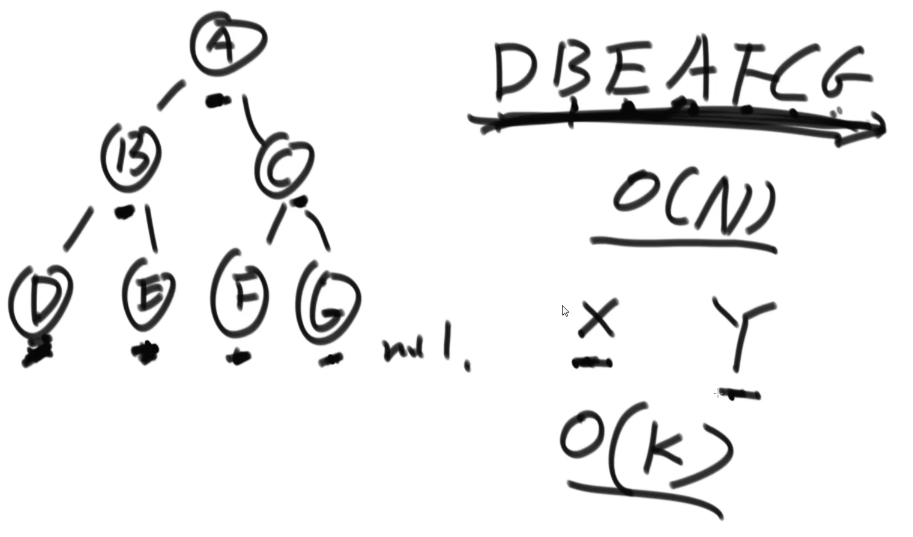 A
B C
D E F G
null.
D B E A F C G
O(N)
X Y
O(K)